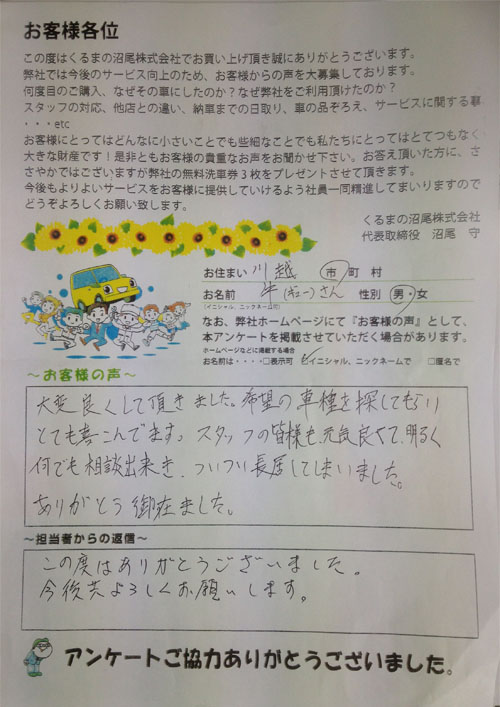 お客様各位
この度はくるまの沼尾株式会社でお買い上げ頂き誠にありがとうございます。
弊社では今後のサービス向上のため、お客様からの声を大募集しております。
何度目のご購入、なぜその車にしたのか？なぜ弊社をご利用頂けたのか？
スタッフの対応、他店との違い、納車までの日取り、車の品ぞろえ、サービスに関する事
・・・etc
お客様にとってはどんなに小さいことでも些細なことでも私たちにとってはとてつもなく
大きな財産です！是非ともお客様の貴重なお声をお聞かせ下さい。お答え頂いた方に、さ
さやかではございますが弊社の無料洗車券３枚をプレゼントさせて頂きます。
今後もよりよいサービスをお客様に提供していけるよう社員一同精進してまいりますので
どうぞよろしくお願い致します。
くるまの沼尾株式会社
代表取締役 沼尾 守
お住まい 川越 市 町 村
お名前 牛(ギュー)さん 性別 男・女
(イニシャル、ニックネーム可)
なお、弊社ホームページにて『お客様の声』として、
本アンケートを掲載させていただく場合があります。
ホームページなどに掲載する場合
お名前は・・・・□表示可 ☑イニシャル、ニックネームで □匿名で
～お客様の声～
大変良くして頂きました。希望の車種を探してもらい
とても喜こんでます。スタッフの皆様も、元気良くて、明るく
何でも相談出来き、ついつい長居してしまいました。
ありがとう御在ました。
～担当者からの返信～
この度はありがとうございました。
今後共よろしくお願いします。
アンケートご協力ありがとうございました。